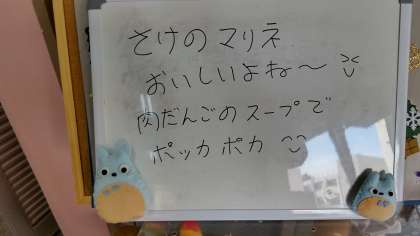 さけのマリネ
おいしいよね〜
肉だんごのスープで
ポッカポカ